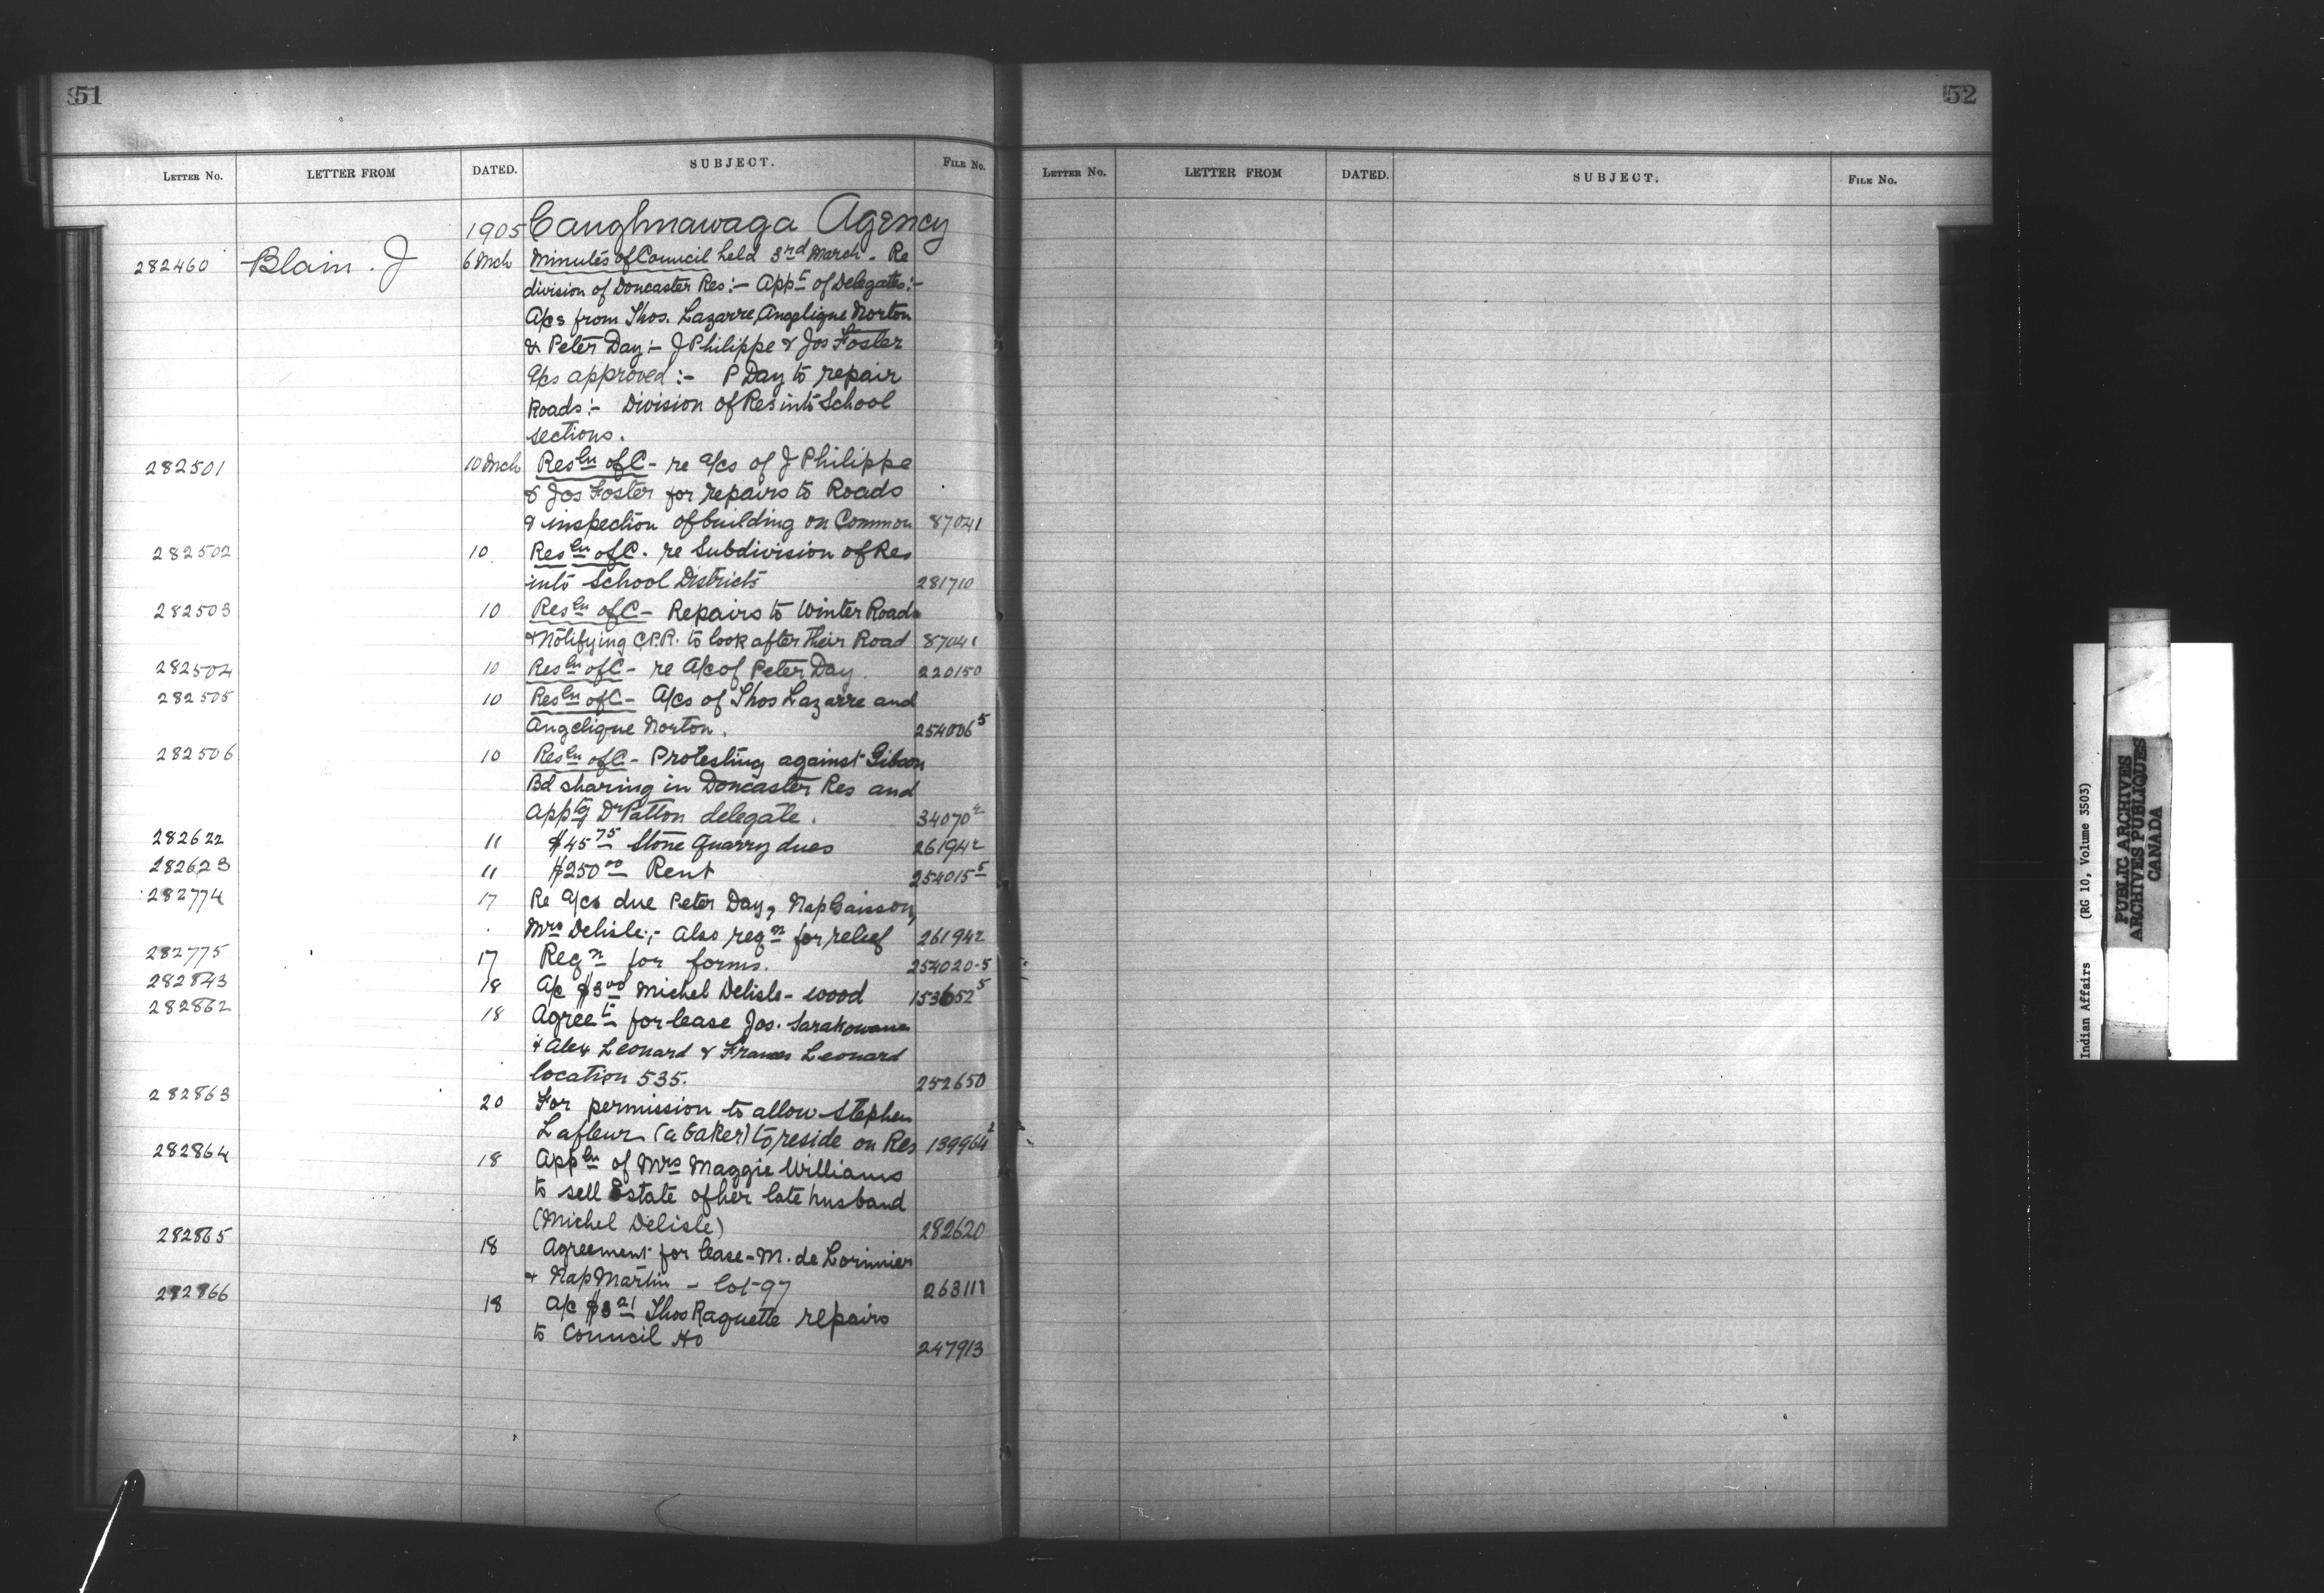 51
LETTER NO. LETTER FROM DATED. SUBJECT. FILE NO.
1905 Caughnawaga Agency
282460 Blain. J 6 Mch Minutes of Council held 3rd March - Re
division of Doncaster Res:- Appt of Delegates:-
A/cs from Thos. Lazarre, Angelique Norton
& Peter Day:- J Philippe & Jos Foster
a/cs approved:- P Day to repair
Roads:- Division of Res into School
sections.
282501 10 Mch Resln of C - re a/cs of J Philippe
& Jos Foster for repairs to Roads
& inspection of building on Common 87041
282502 10 Resln of C. re Subdivision of Res
into School Districts 281710
282503 10 Resln of C - Repairs to Winter Roads
& Notifying C.P.R. to look after their Road 87041
282504 10 Resln of C - re A/c of Peter Day. 220150
282505 10 Resln of C - A/cs of Thos Lazarre and
Angelique Norton. 254006 5
282506 10 Resln of C - Protesting against Gibson
Bd sharing in Doncaster Res and
apptg Dr Patton delegate. 34070 2
282622 11 $45 75 Stone Quarry dues 261942
282623 11 $250 00 Rent 254015 5
282774 17 Re a/cs due Peter Day, Nap Gaisson,
Mrs Delisle;- Also reqn for relief 261942
282775 17 Reqn for forms. 254020-5
282843 18 A/c $3 00 Michel Delisle - wood 153652 5
282862 18 Agreet for lease Jos. Sarakowane
& Alex Leonard & Frances Leonard
location 535. 252650
282863 20 For permission to allow Stephen
Lafleur (a baker) to reside on Res 139964 2
282864 18 Appln of Mrs Maggie Williams
to sell Estate of her late husband
(Michel Delisle) 282620
282865 18 Agreement for lease - M. de Lorimier
& Nap Martin - lot 97 263111
282866 18 A/c $3 21 Thos Raquette repairs
to Council Ho 247913
52
LETTER NO. LETTER FROM DATED. SUBJECT. FILE NO.
Indian Affairs (RG 10, Volume 3503)
PUBLIC ARCHIVES
ARCHIVES PUBLIQUES
CANADA